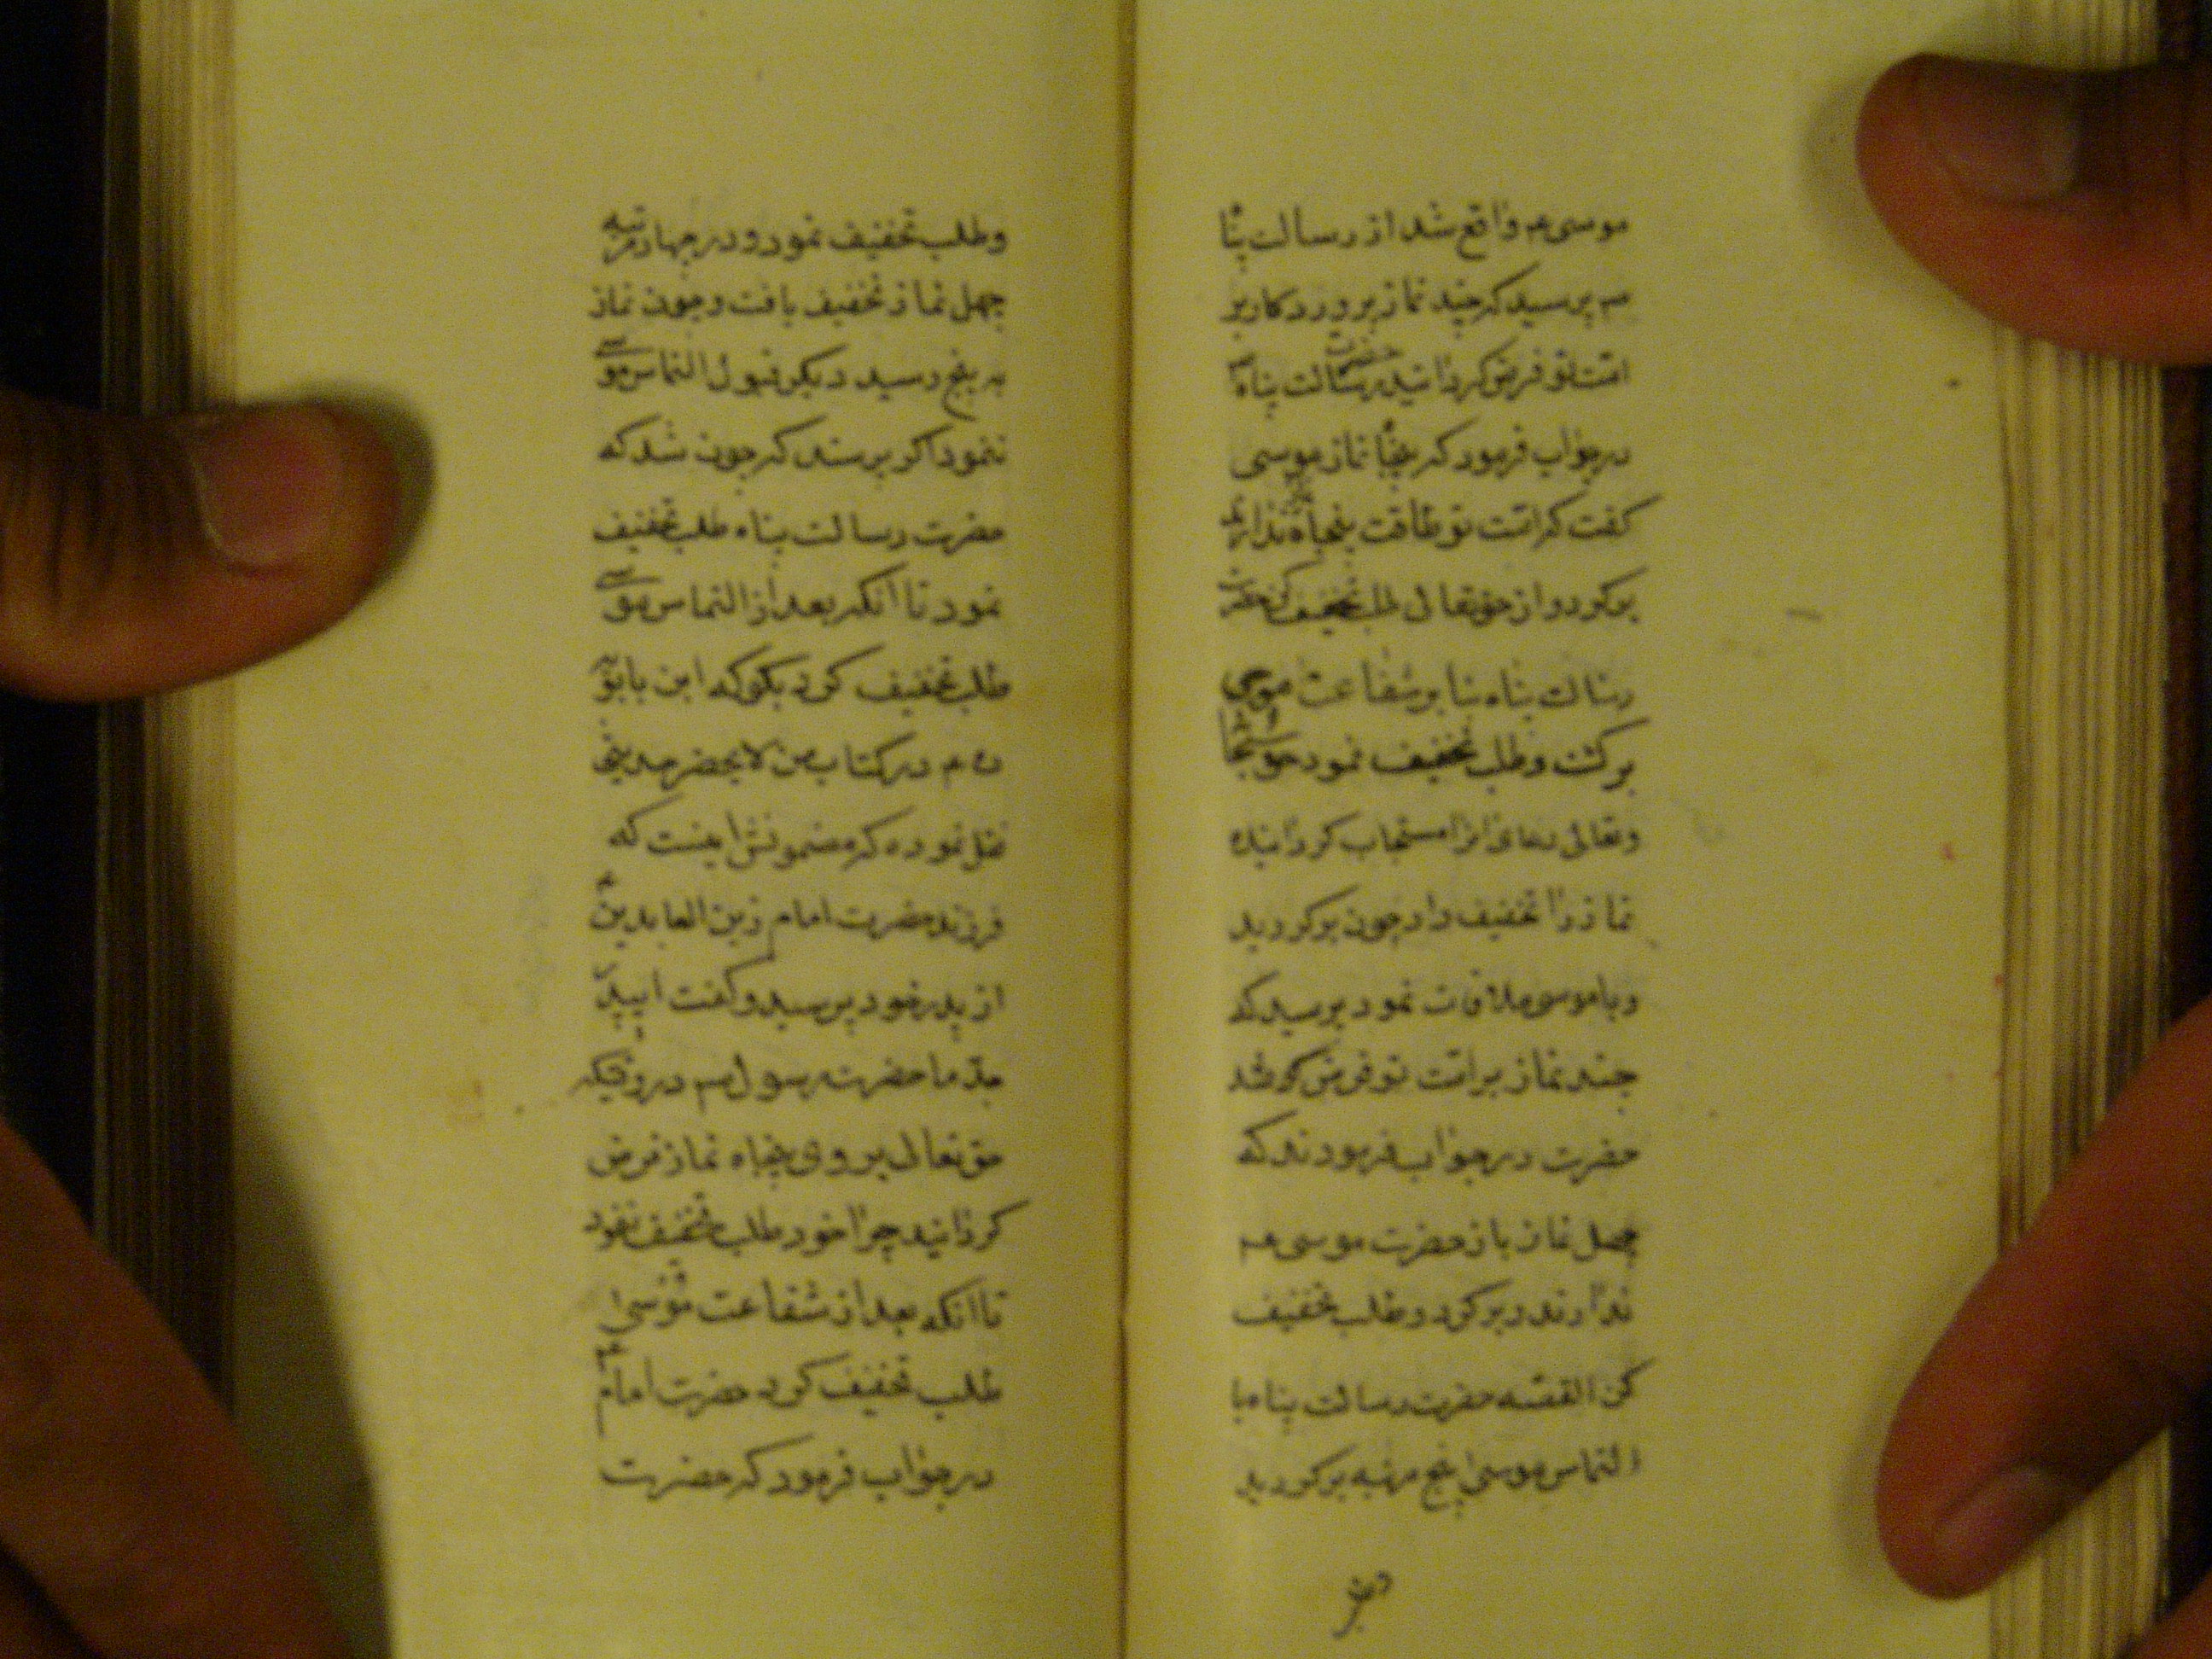 موسی عم واقع شد از رسالت پنا
صم پرسید که چند نماز پروردکار بر
امت تو فرض کردانید حضرت رسالت پناه
در جواب فرمود که پنجا نماز موسی
کفت که امت تو طاقت پنجاه ندارند
برکرد و از حق تعالی طلب تخفیف کن حضرت
رسالت پناه بنا بر شفاعت موسی
برکشت و طلب تخفیف نمود حق
وتعالی دعای او را مستجاب کردانیده
نماز را تخفیف داد چون برکردید
و با موسی ملاقات نمود پرسید که
چند نماز بر امت تو فرض کرد شد
حضرت در جواب فرمودند که
چهل نماز باز حضرت موسی عم
ندارند و برکرد و طلب تخفیف
کن القصه حضرت رسالت پناه با
التماس موسی پنج مرتبه برکردید
وطلب تخفیف نمود و در چهار مرتبه
چهل نماز تخفیف یافت و چون نماز
به پنج رسید دیکر قبول التماس موسی
ننمود اکر پرسند که چون شد که
حضرت رسالت پناه طلب تخفیف
نمود تا آنکه بعد از التماس موسی
طلب تخفیف کرد بکو که ابن بابویه
ره م در کتاب من لا یحضر حدیثی
نقل نموده که مضمونش اینست که
فرزند حضرت امام زین العابدین
از پدر خود پرسید و کفت ای پدر
جد ما حضرت رسول صم در وقتیکه
حق تعالی بر وی پنجاه نماز فرض
کردانید چرا خود طلب تخفیف نفرمود
تا آنکه بعد از شفاعت موسی
طلب تخفیف کرد حضرت امام
در جواب فرمود که حضرت